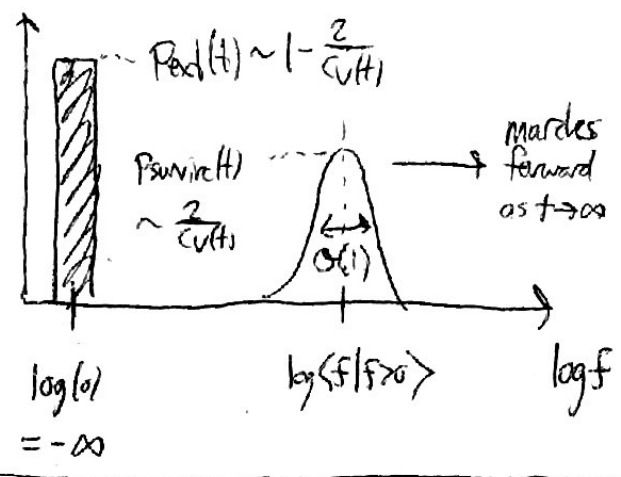 Pext(t) ~ 1 - 2/cv(t)
Psurvive(t)
~ 2/cv(t)
marches
forward
as t→∞
O(1)
log(0)
= -∞
log⟨f|f>0⟩
log f